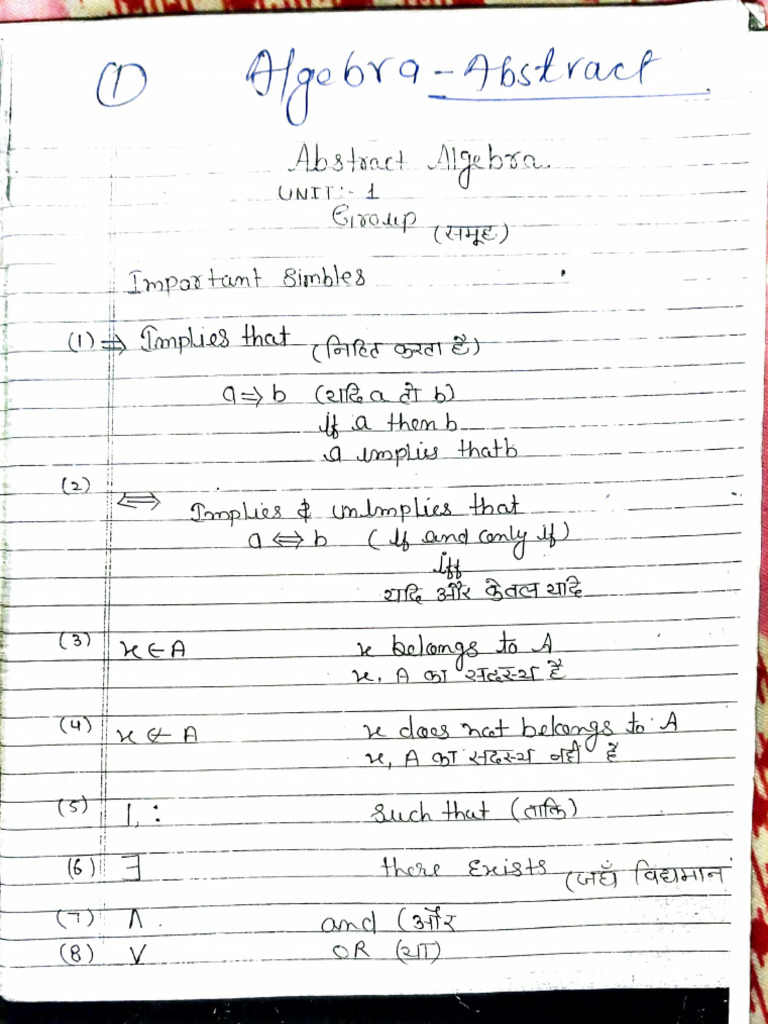 ① Algebra - Abstract
Abstract Algebra
UNIT:- 1
Group (समूह)
Important Simbles
(1) ⇒ Implies that (निहित करता है)
a ⇒ b (यदि a तो b)
if a then b
a implies that b
(2) ⇔ Implies & unImplies that
a ⇔ b (if and only if)
iff
यदि और केवल यदि
(3) x ∈ A x belongs to A
x, A का सदस्य है
(4) x ∉ A x does not belongs to A
x, A का सदस्य नहीं है
(5) |, : such that (ताकि)
(6) ∃ there exists (जहाँ विद्यमान
(7) ∧ and (और
(8) ∨ OR (या)